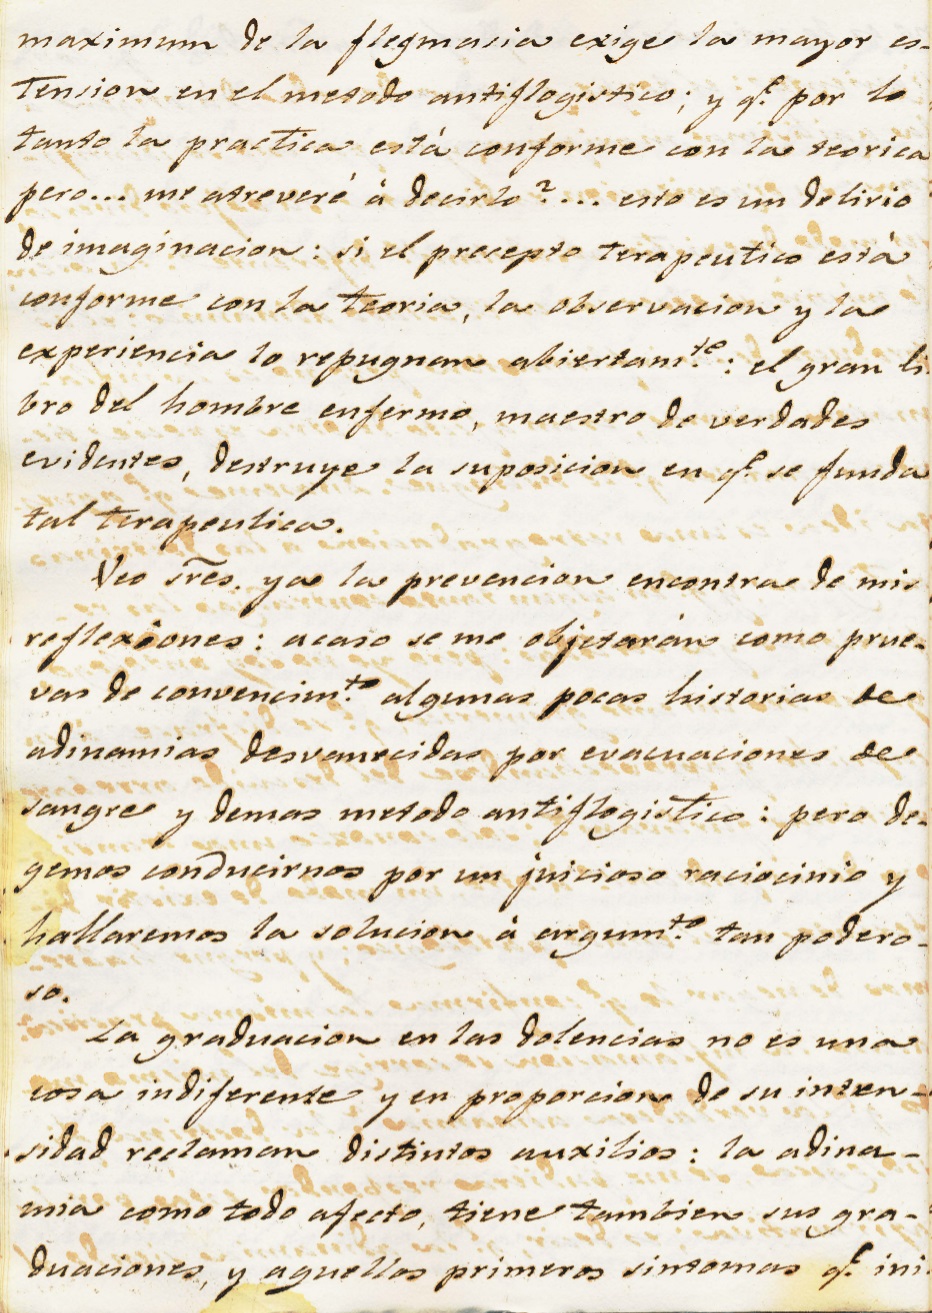 maximum de la flegmasia exige la mayor es-
tension en el metodo antiflogistico; y q.e por lo
tanto la practica está conforme con la teorica
pero... me atreveré á decirlo?.... esto es un delirio
de imaginacion: si el precepto terapeutico está
conforme con la teoria, la observacion y la
experiencia lo repugnan abiertam.te: el gran li-
bro del hombre enfermo, maestro de verdades
evidentes, destruye la suposicion en q.e se funda
tal terapeutica.
Veo sres. ya la prevencion encontra de mis
reflexiones: acaso se me objetarán como prue-
vas de convencim.to algunas pocas historias de
adinamias desvanecidas por evacuaciones de
sangre y demas metodo antiflogistico: pero de-
gemos conducirnos por un juicioso raciocinio y
hallaremos la solucion á argum.to tan podero-
so.
La graduacion en las dolencias no es una
cosa indiferente y en proporcion de su inten-
sidad reclaman distintos auxilios: la adina-
mia como todo afecto, tiene tambien sus gra-
duaciones, y aquellos primeros sintomas q.e ini-